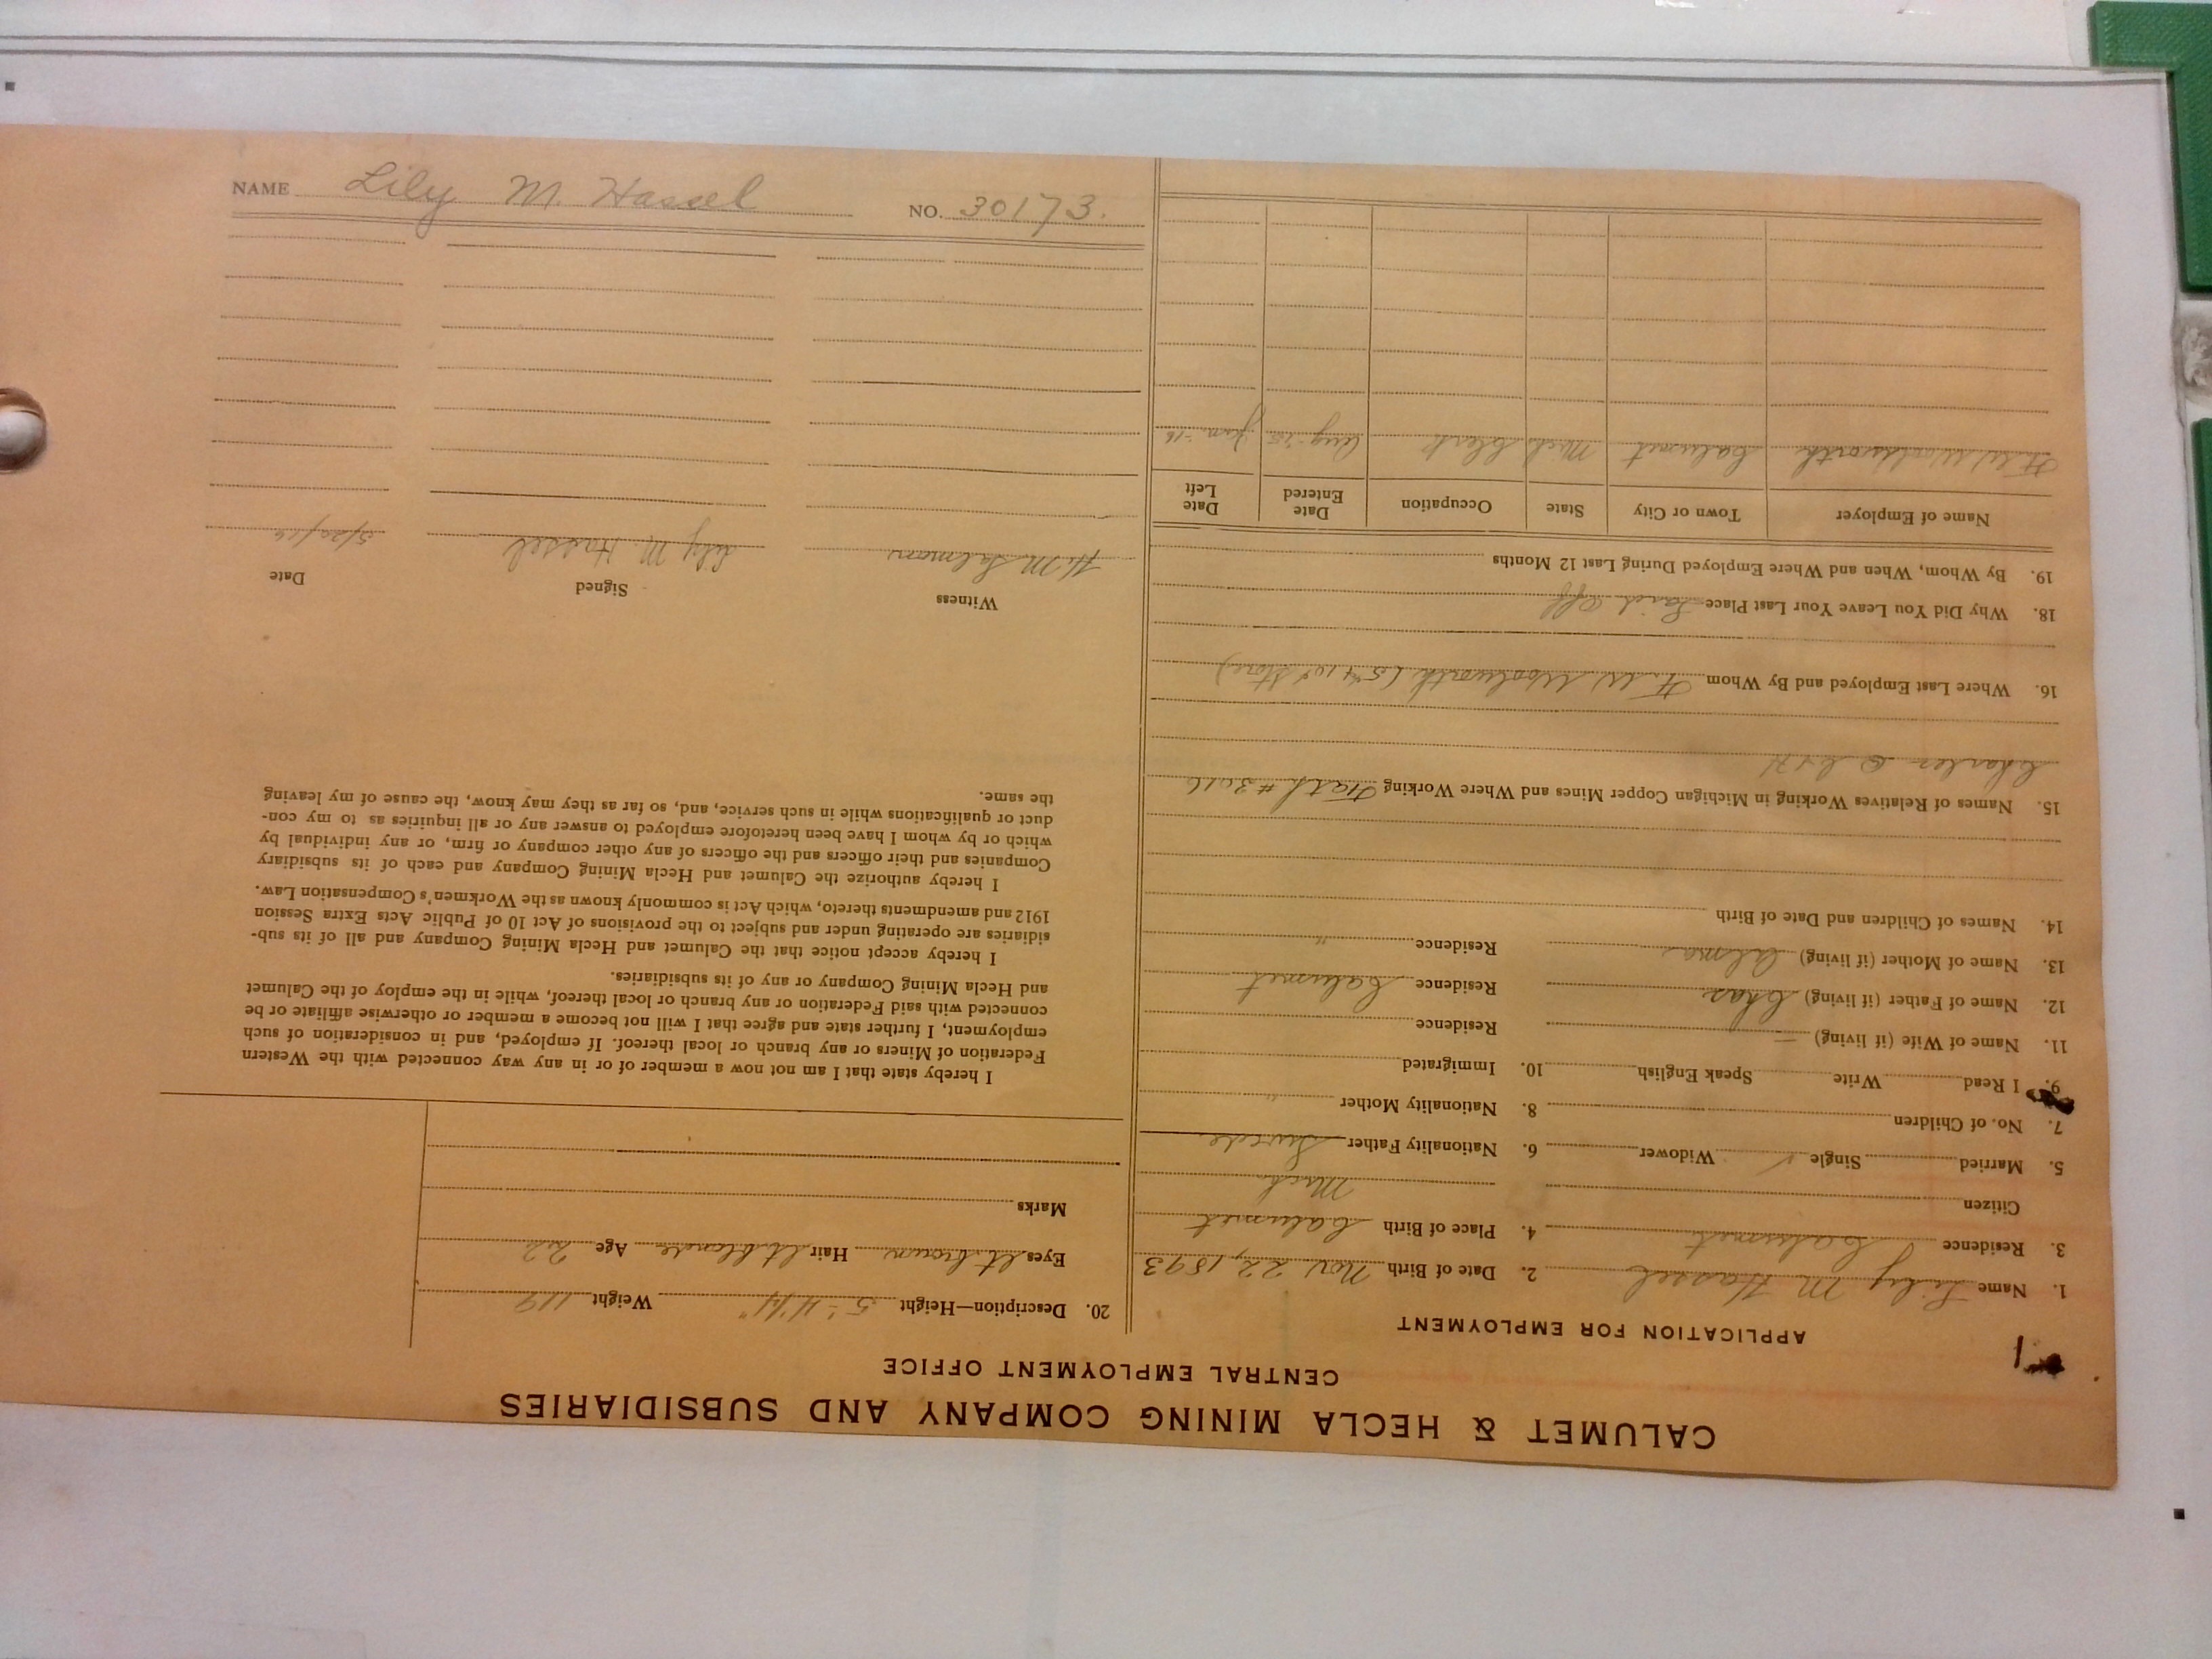 CALUMET & HECLA MINING COMPANY AND SUBSIDIARIES
CENTRAL EMPLOYMENT OFFICE
APPLICATION FOR EMPLOYMENT
1. Name Lily M Hassel 2. Date of Birth Nov 22, 1893
3. Residence Calumet 4. Place of Birth Calumet
Citizen Mich
5. Married Single ✓ Widower 6. Nationality Father Swede
7. No. of Children 8. Nationality Mother "
9. I Read Write Speak English 10. Immigrated
11. Name of Wife (if living) — Residence
12. Name of Father (if living) Chas Residence Calumet
13. Name of Mother (if living) Alma Residence "
14. Names of Children and Date of Birth
15. Names of Relatives Working in Michigan Copper Mines and Where Working Fath #3016
Charles C & H
16. Where Last Employed and By Whom F. W. Woolworth (5 & 10¢ Store)
18. Why Did You Leave Your Last Place Laid Off
19. By Whom, When and Where Employed During Last 12 Months
Name of Employer Town or City State Occupation Date Entered Date Left
F. W. Woolworth Calumet Mich Clerk Aug-'15 Jan.-16
20. Description—Height 5'-4¼" Weight 119
Eyes lt brown Hair lt blonde Age 22
Marks
I hereby state that I am not now a member of or in any way connected with the Western
Federation of Miners or any branch or local thereof. If employed, and in consideration of such
employment, I further state and agree that I will not become a member or otherwise affiliate or be
connected with said Federation or any branch or local thereof, while in the employ of the Calumet
and Hecla Mining Company or any of its subsidiaries.
I hereby accept notice that the Calumet and Hecla Mining Company and all of its sub-
sidiaries are operating under and subject to the provisions of Act 10 of Public Acts Extra Session
1912 and amendments thereto, which Act is commonly known as the Workmen's Compensation Law.
I hereby authorize the Calumet and Hecla Mining Company and each of its subsidiary
Companies and their officers and the officers of any other company or firm, or any individual by
which or by whom I have been heretofore employed to answer any or all inquiries as to my con-
duct or qualifications while in such service, and, so far as they may know, the cause of my leaving
the same.
Witness Signed Date
H. M. Salmon Lily M. Hassel 5/20/16
NAME Lily M. Hassel NO. 30173.